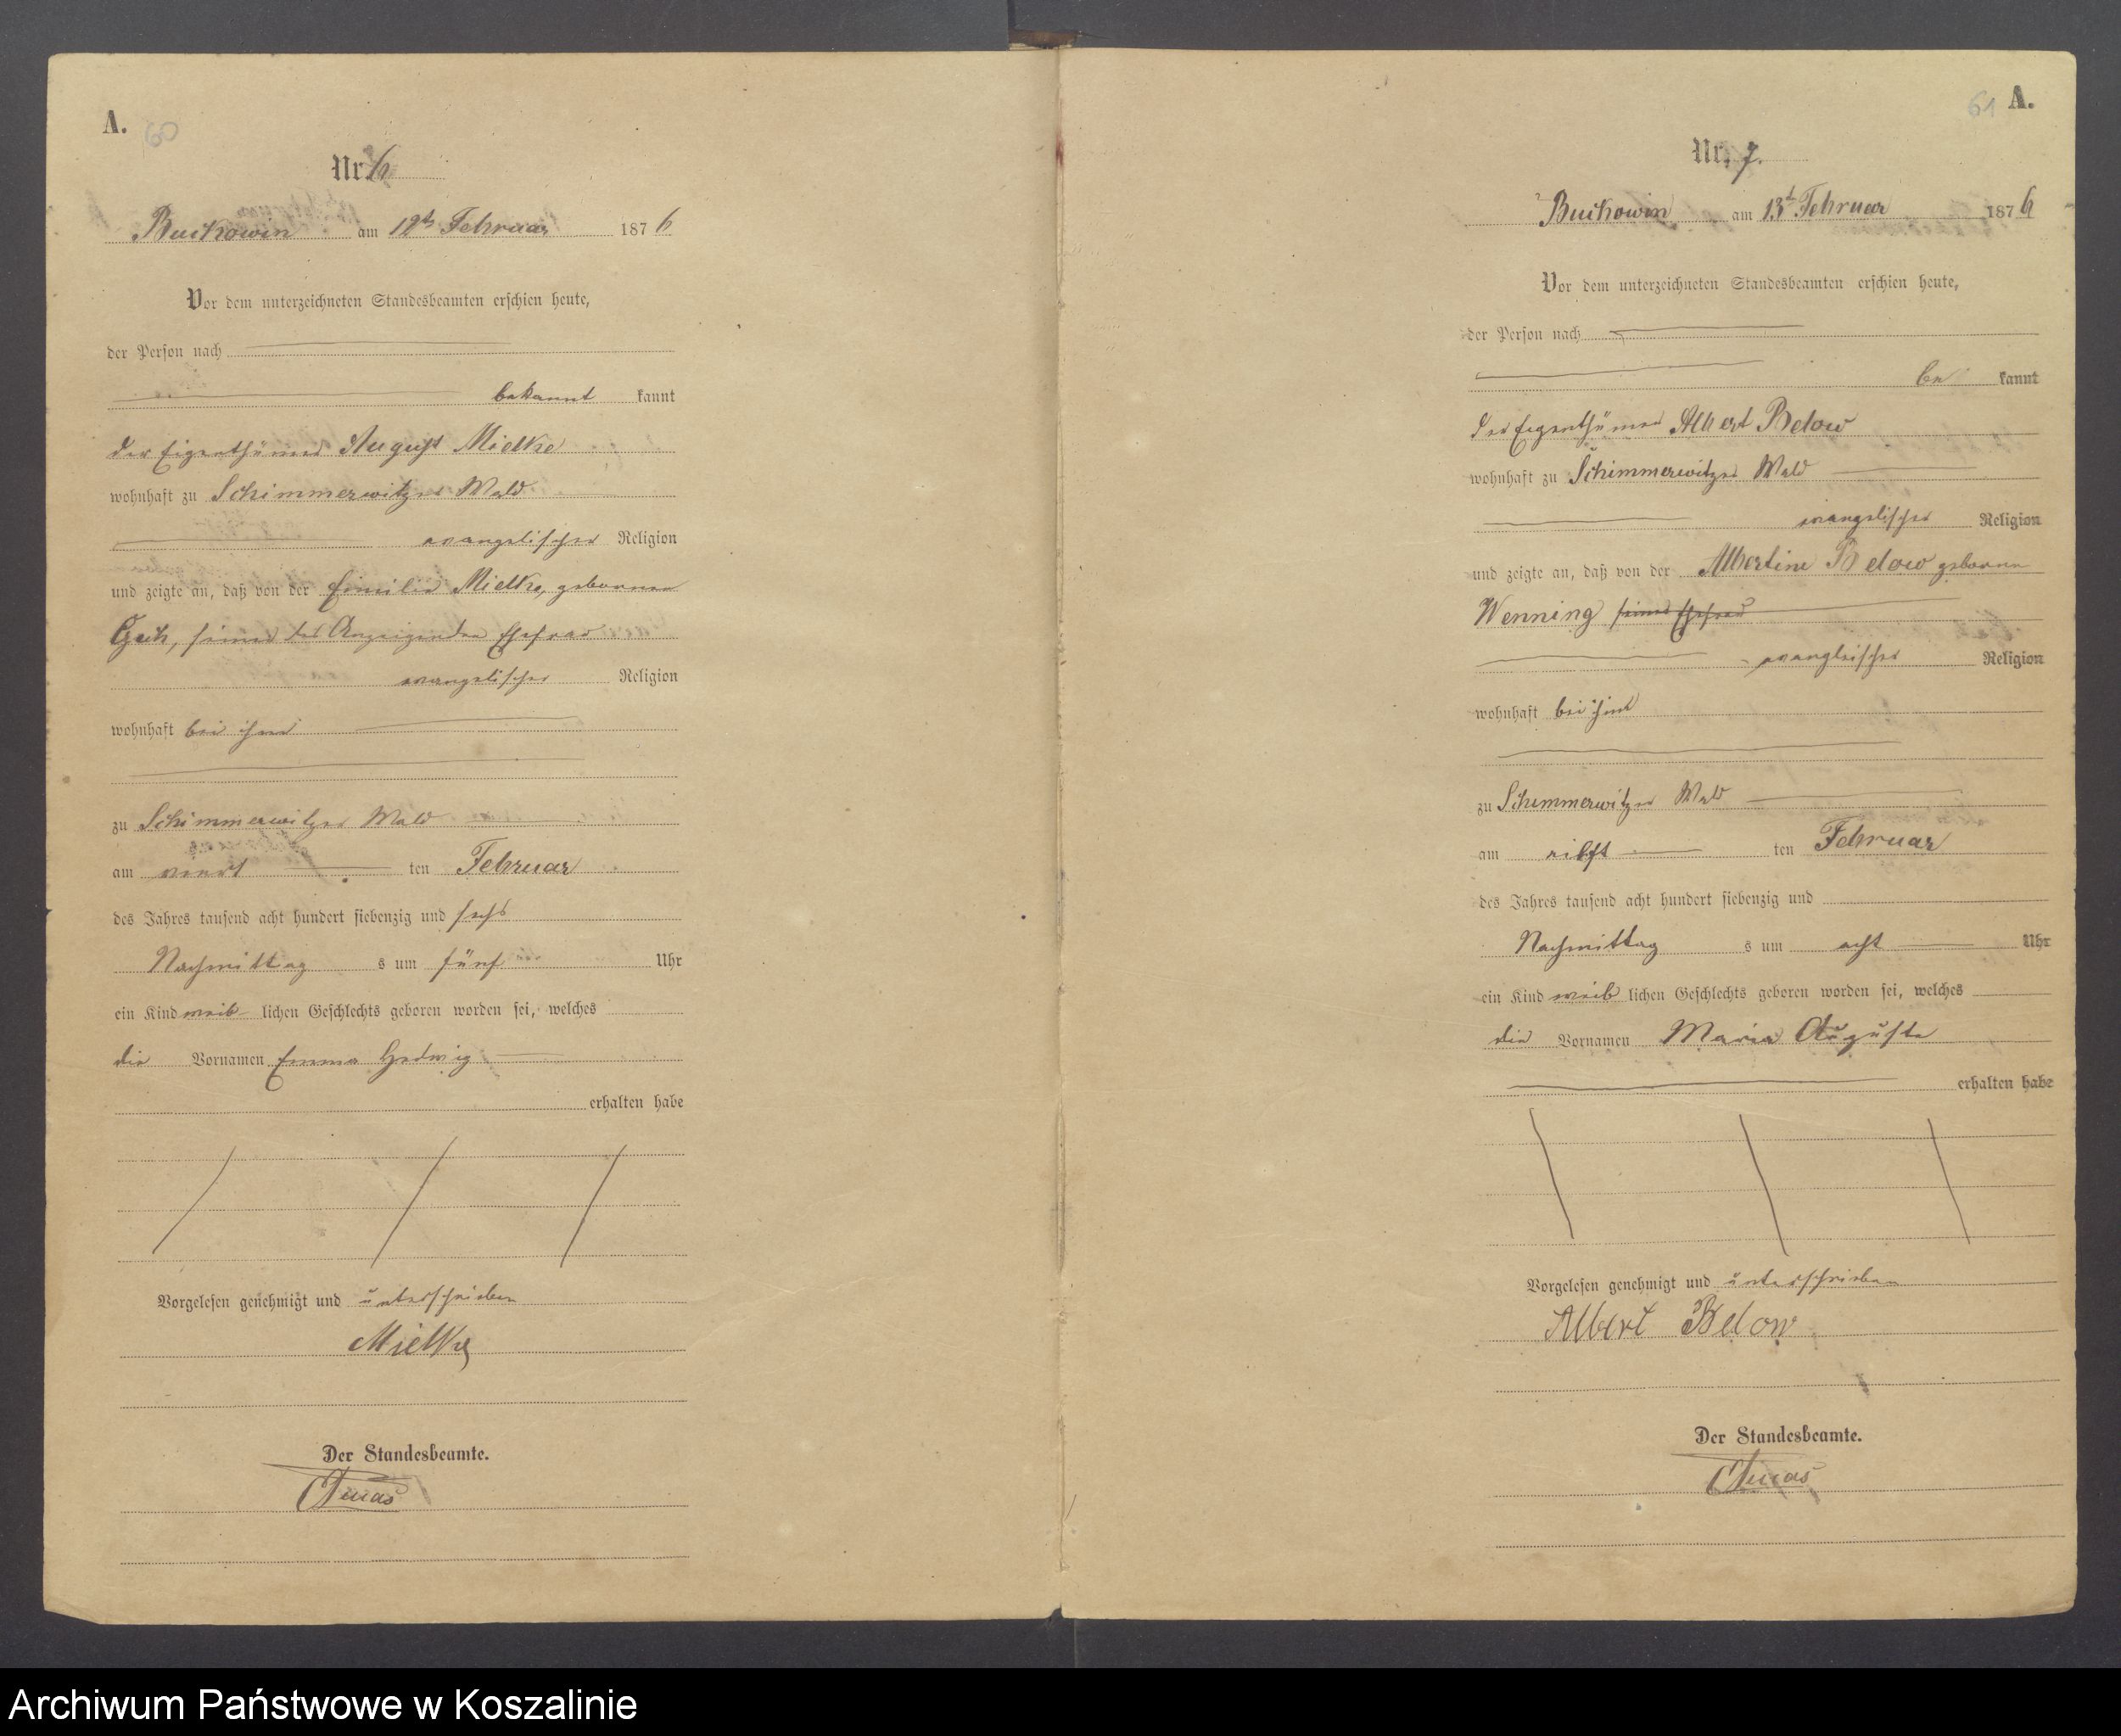 A.
60
Nr. 6
Buckowin am 12t Februar 1876
Vor dem unterzeichneten Standesbeamten erschien heute,
der Person nach
bekannt kannt
der Eigenthümer August Mielke
wohnhaft zu Schimmerwitzer Wald
evangelischer Religion
und zeigte an, daß von der Emilie Mielke, geborenen
seiner des Anzeigenden Ehefrau
evangelischer Religion
wohnhaft bei ihm
zu Schimmerwitzer Wald
am viert ten Februar
des Jahres tausend acht hundert siebenzig und sechs
Nachmittag s um fünf Uhr
ein Kind weib lichen Geschlechts geboren worden sei, welches
die Vornamen Emma Hedwig
erhalten habe
Vorgelesen genehmigt und unterschrieben
Mielke
Der Standesbeamte.
61 A.
Nr. 7.
Buckowin am 13t Februar 1876
Vor dem unterzeichneten Standesbeamten erschien heute,
der Person nach
be kannt
der Eigenthümer Albert Below
wohnhaft zu Schimmerwitzer Wald
evangelischer Religion
und zeigte an, daß von der Albertine Below geborene
Wenning seiner Ehefrau
evanglischer Religion
wohnhaft bei ihm
zu Schimmerwitzer Wald
am eilft ten Februar
des Jahres tausend acht hundert siebenzig und
Nachmittag s um acht Uhr
ein Kind weib lichen Geschlechts geboren worden sei, welches
die Vornamen Maria Auguste
erhalten habe
Vorgelesen genehmigt und unterschrieben
Albert Below
Der Standesbeamte.
Archiwum Państwowe w Koszalinie